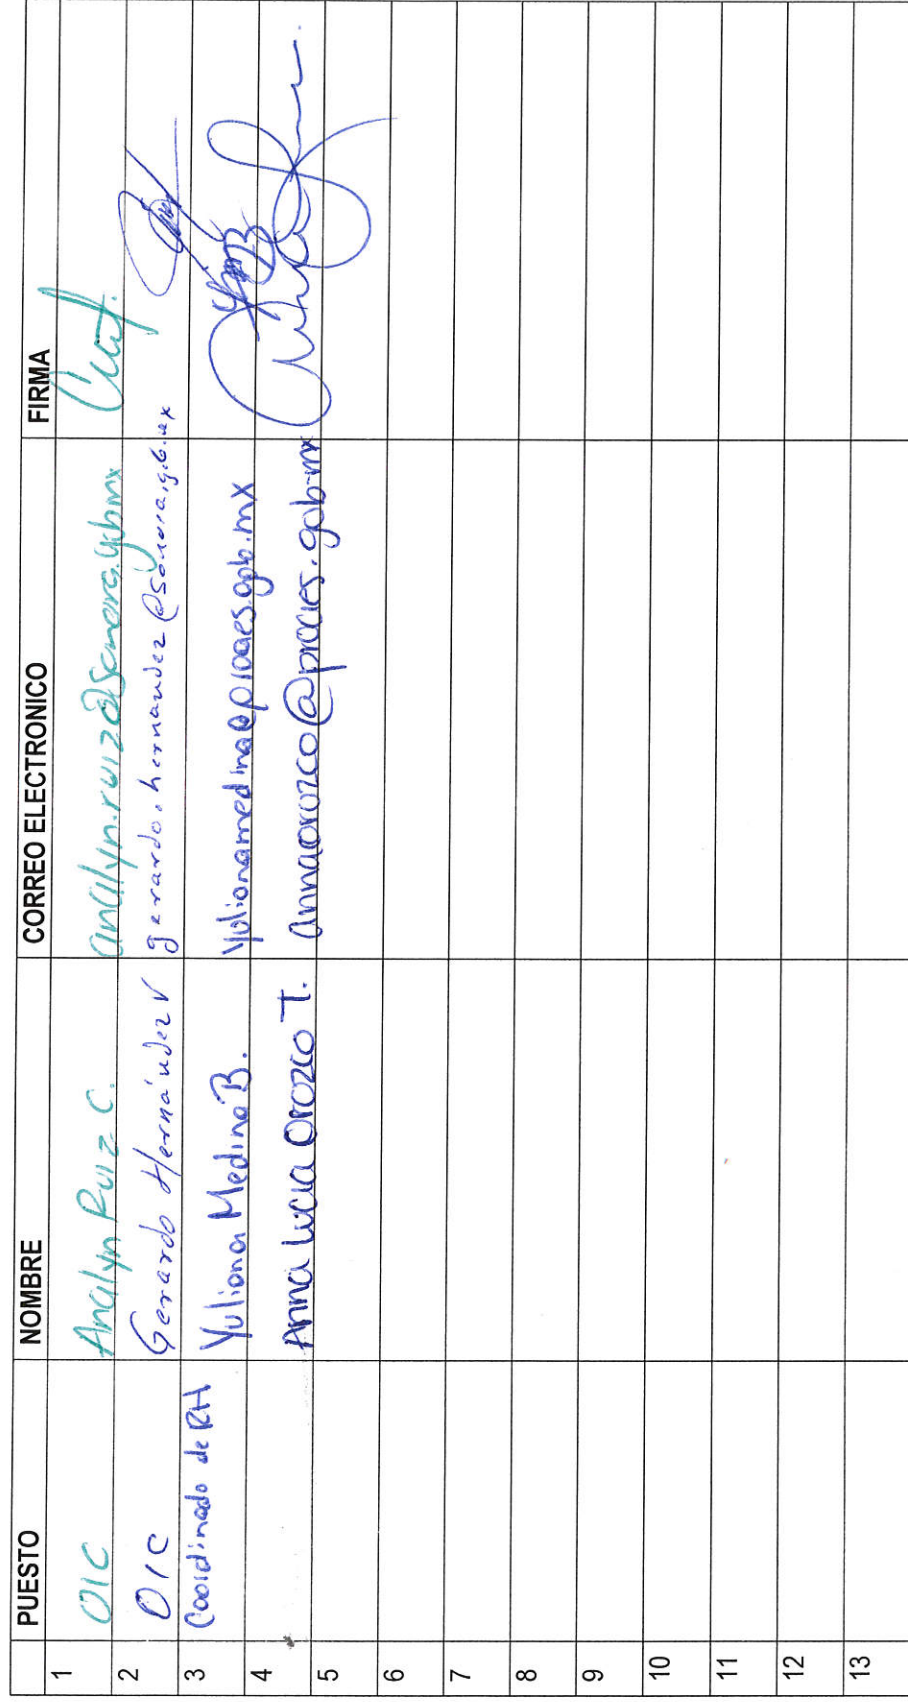 PUESTO NOMBRE CORREO ELECTRONICO FIRMA
1 OIC Analyn Ruiz C. analyn.ruiz@sonora.gob.mx
2 OIC Gerardo Hernández V gerardo.hernandez@sonora.gob.mx
3 Coordinado de RH Yuliana Medina B. yulianamedina@proaes.gob.mx
4 Anna Lucia Orozco T. annaorozco@proaes.gob.mx
5
6
7
8
9
10
11
12
13